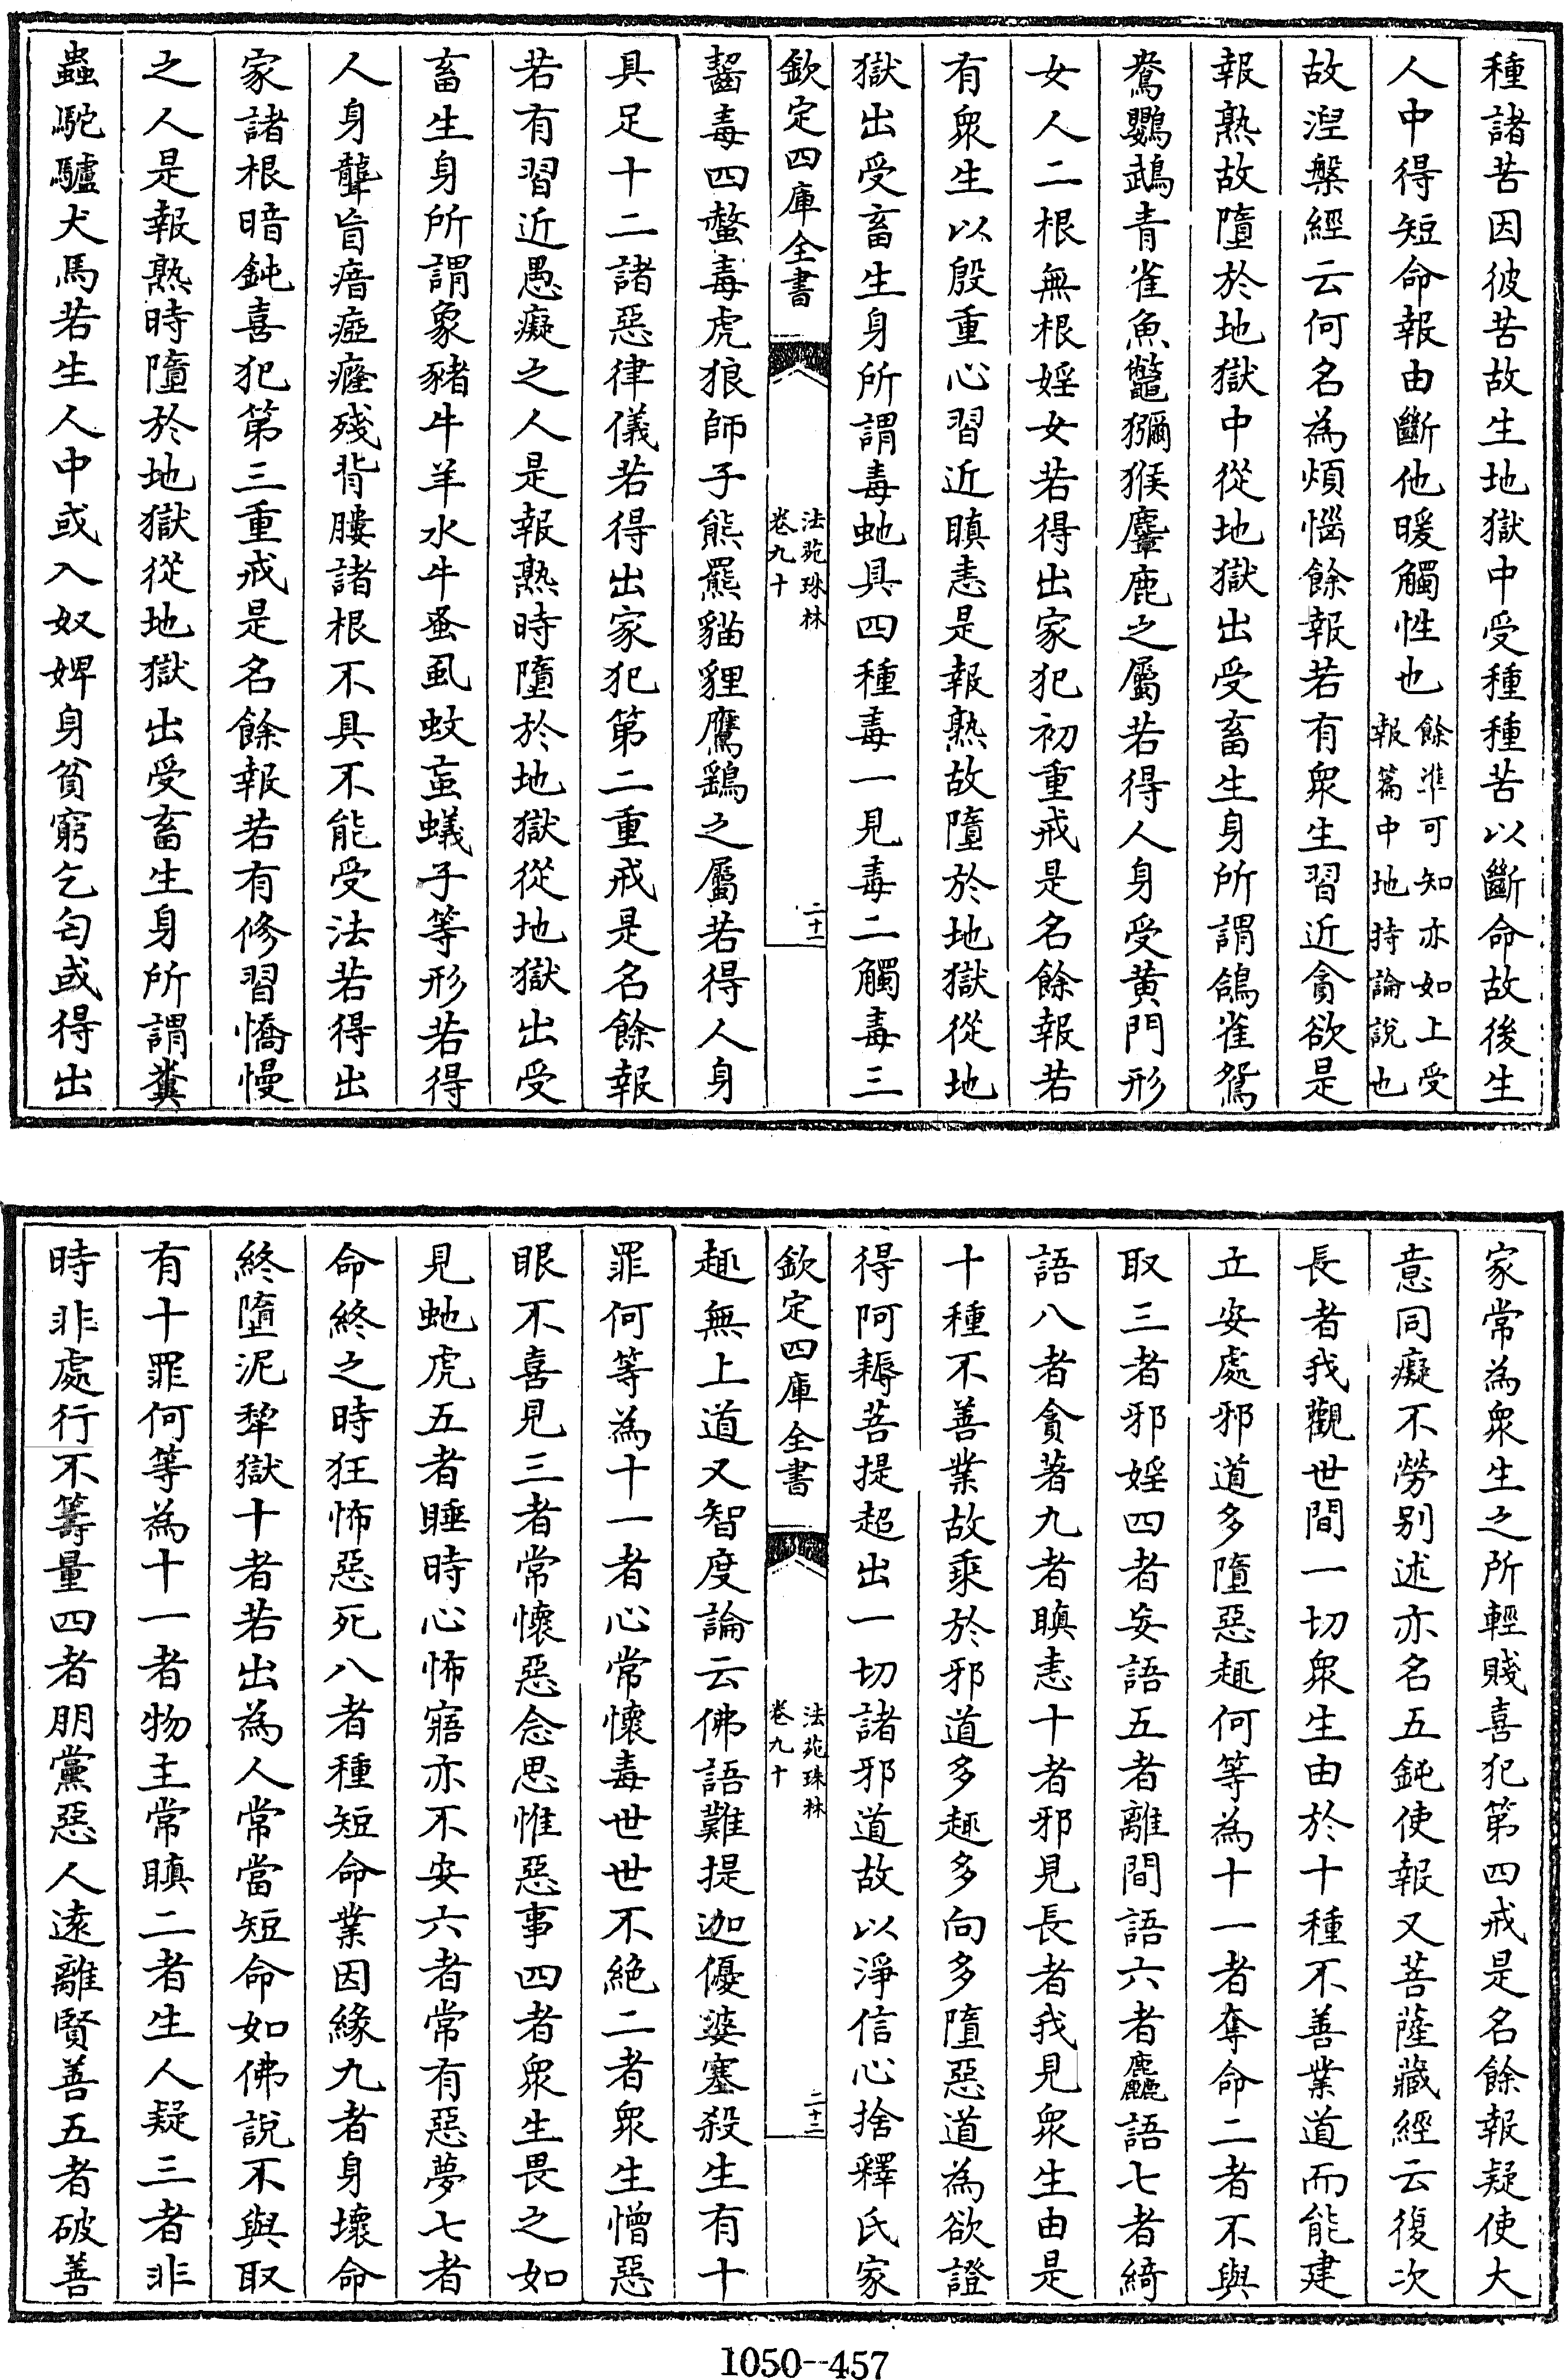 種諸苦因彼苦故生地獄中受種種苦以斷命故後生
人中得短命報由斷他暖觸性也餘準可知亦如上受報篇中地持論説也
故湼槃經云何名為煩惱餘報若有衆生習近貪欲是
報熟故墮於地獄中從地獄出受畜生身所謂鴿雀鴛
鴦鸚鵡青雀魚鼈獼猴麞鹿之屬若得人身受黄門形
女人二根無根婬女若得出家犯初重戒是名餘報若
有衆生以殷重心習近瞋恚是報熟故墮於地獄從地
獄出受畜生身所謂毒虵具四種毒一見毒二觸毒三
欽定四庫全書
法苑珠林
卷九十
二十一
齧毒四螫毒虎狼師子熊羆貓貍鷹鷂之屬若得人身
具足十二諸惡律儀若得出家犯第二重戒是名餘報
若有習近愚癡之人是報熟時墮於地獄從地獄出受
畜生身所謂象豬牛羊水牛蚤虱蚊䖟蟻子等形若得
人身聾盲瘖瘂癃殘背膢諸根不具不能受法若得出
家諸根暗鈍喜犯第三重戒是名餘報若有修習憍慢
之人是報熟時墮於地獄從地獄出受畜生身所謂糞
蟲駝驢犬馬若生人中或入奴婢身貧窮乞匄或得出
家常為衆生之所輕賤喜犯第四戒是名餘報疑使大
意同癡不勞别述亦名五鈍使報又菩薩藏經云復次
長者我觀世間一切衆生由於十種不善業道而能建
立安處邪道多墮惡趣何等為十一者奪命二者不與
取三者邪婬四者妄語五者離間語六者麤語七者綺
語八者貪著九者瞋恚十者邪見長者我見衆生由是
十種不善業故乘於邪道多趣多向多墮惡道為欲證
得阿耨菩提超出一切諸邪道故以淨信心捨釋氏家
欽定四庫全書
法苑珠林
卷九十
二十二
趣無上道又智度論云佛語難提迦優婆塞殺生有十
罪何等為十一者心常懷毒世世不絶二者衆生憎惡
眼不喜見三者常懷惡念思惟惡事四者衆生畏之如
見虵虎五者睡時心怖寤亦不安六者常有惡夢七者
命終之時狂怖惡死八者種短命業因緣九者身壞命
終墮泥犂獄十者若出為人常當短命如佛説不與取
有十罪何等為十一者物主常瞋二者生人疑三者非
時非處行不籌量四者朋黨惡人遠離賢善五者破善
1050-457